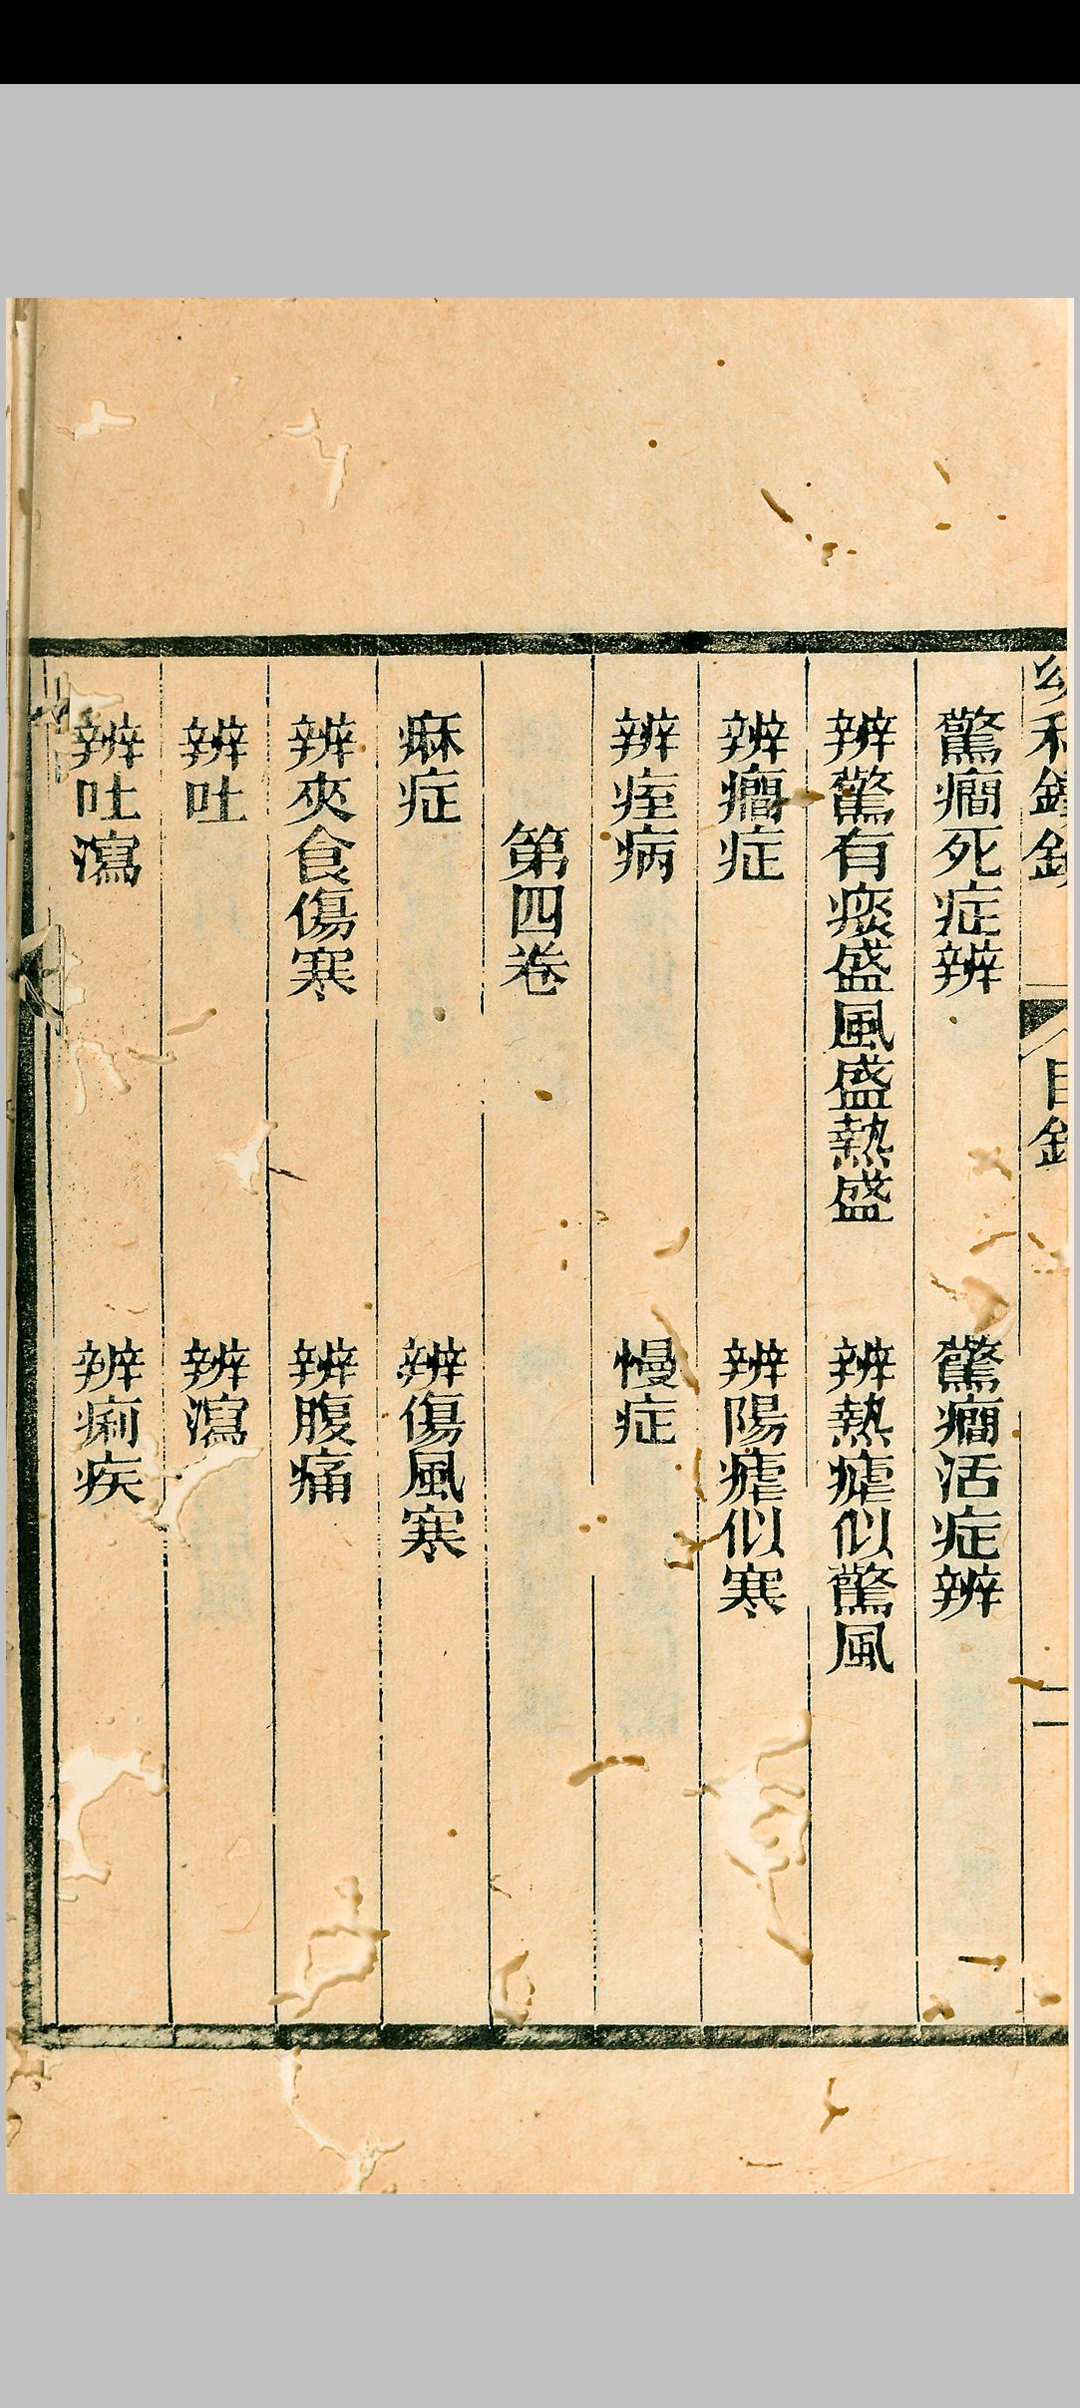 目錄
驚癇死症辨　驚癇活症辨
辨驚有痰盛風盛熱盛　辨熱瘧似驚風
辨癇症　辨陽瘧似寒
辨痓病　慢症
第四卷
痳症　辨傷風寒
辨夾食傷寒　辨腹痛
辨吐　辨瀉
辨吐瀉　辨痢疾